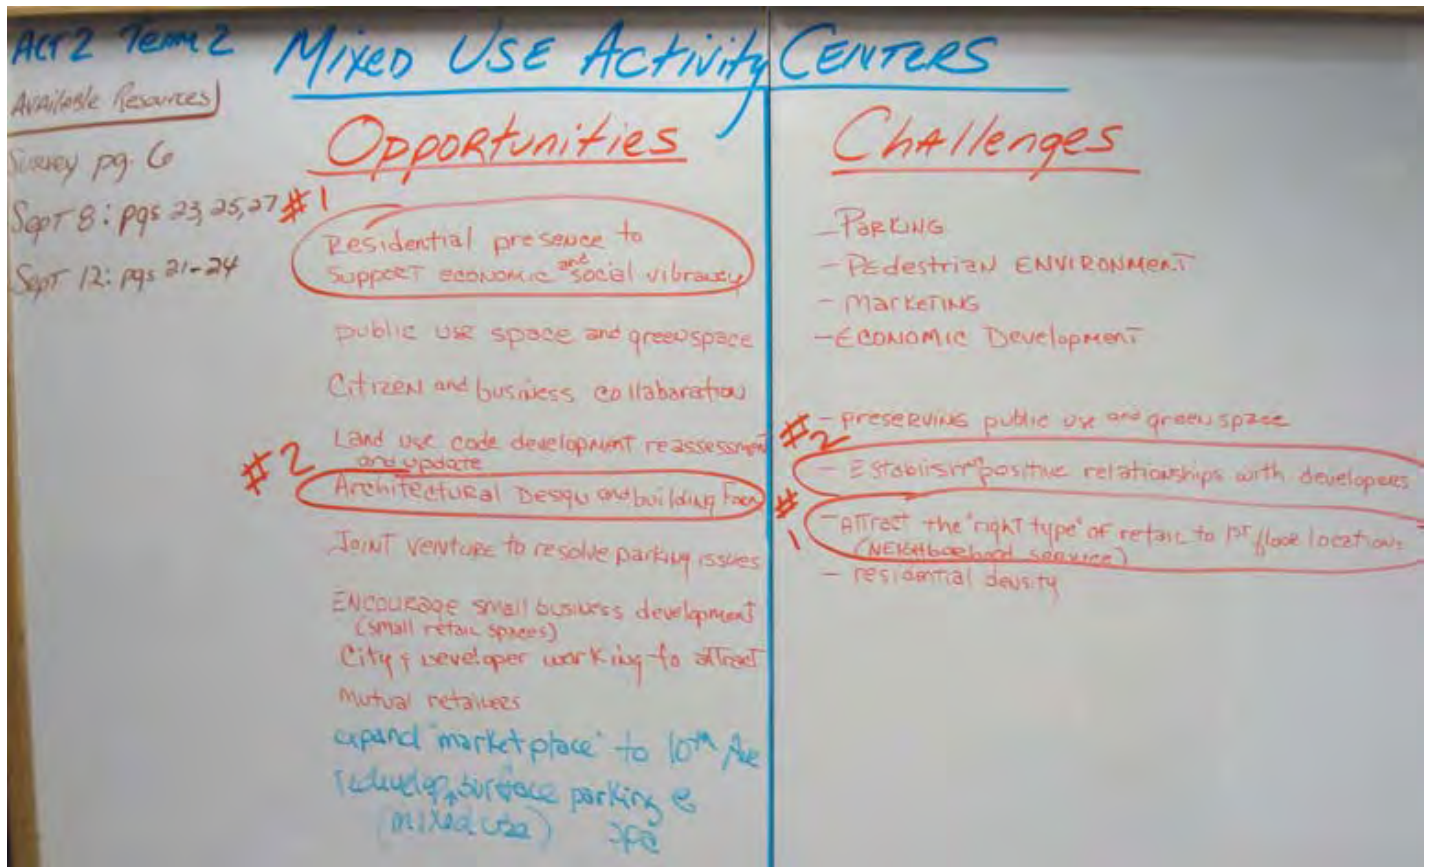 ACT 2 Team 2
Mixed Use Activity Centers
Available Resources
Survey pg. 6
Sept 8: pgs 23, 25, 27
Sept 12: pgs 21-24
Opportunities
#1
Residential presence to
support economic and social vibrancy
public use space and greenspace
Citizen and business collabaration
Land use code development reassessment
and update
#2
Architectural Design and building Form
Joint venture to resolve parking issues
Encourage small business development
(small retail spaces)
City & Developer working to attract
Mutual retailers
expand "market place" to 10th Ave
redevelop surface parking @
(mixed use)
Challenges
- Parking
- Pedestrian Environment
- Marketing
- Economic Development
- preserving public use and green space
#2
- Establish positive relationships with developers
#1
- Attract the "right type" of retail to 1st floor locations
(Neighborhood service)
- residential density